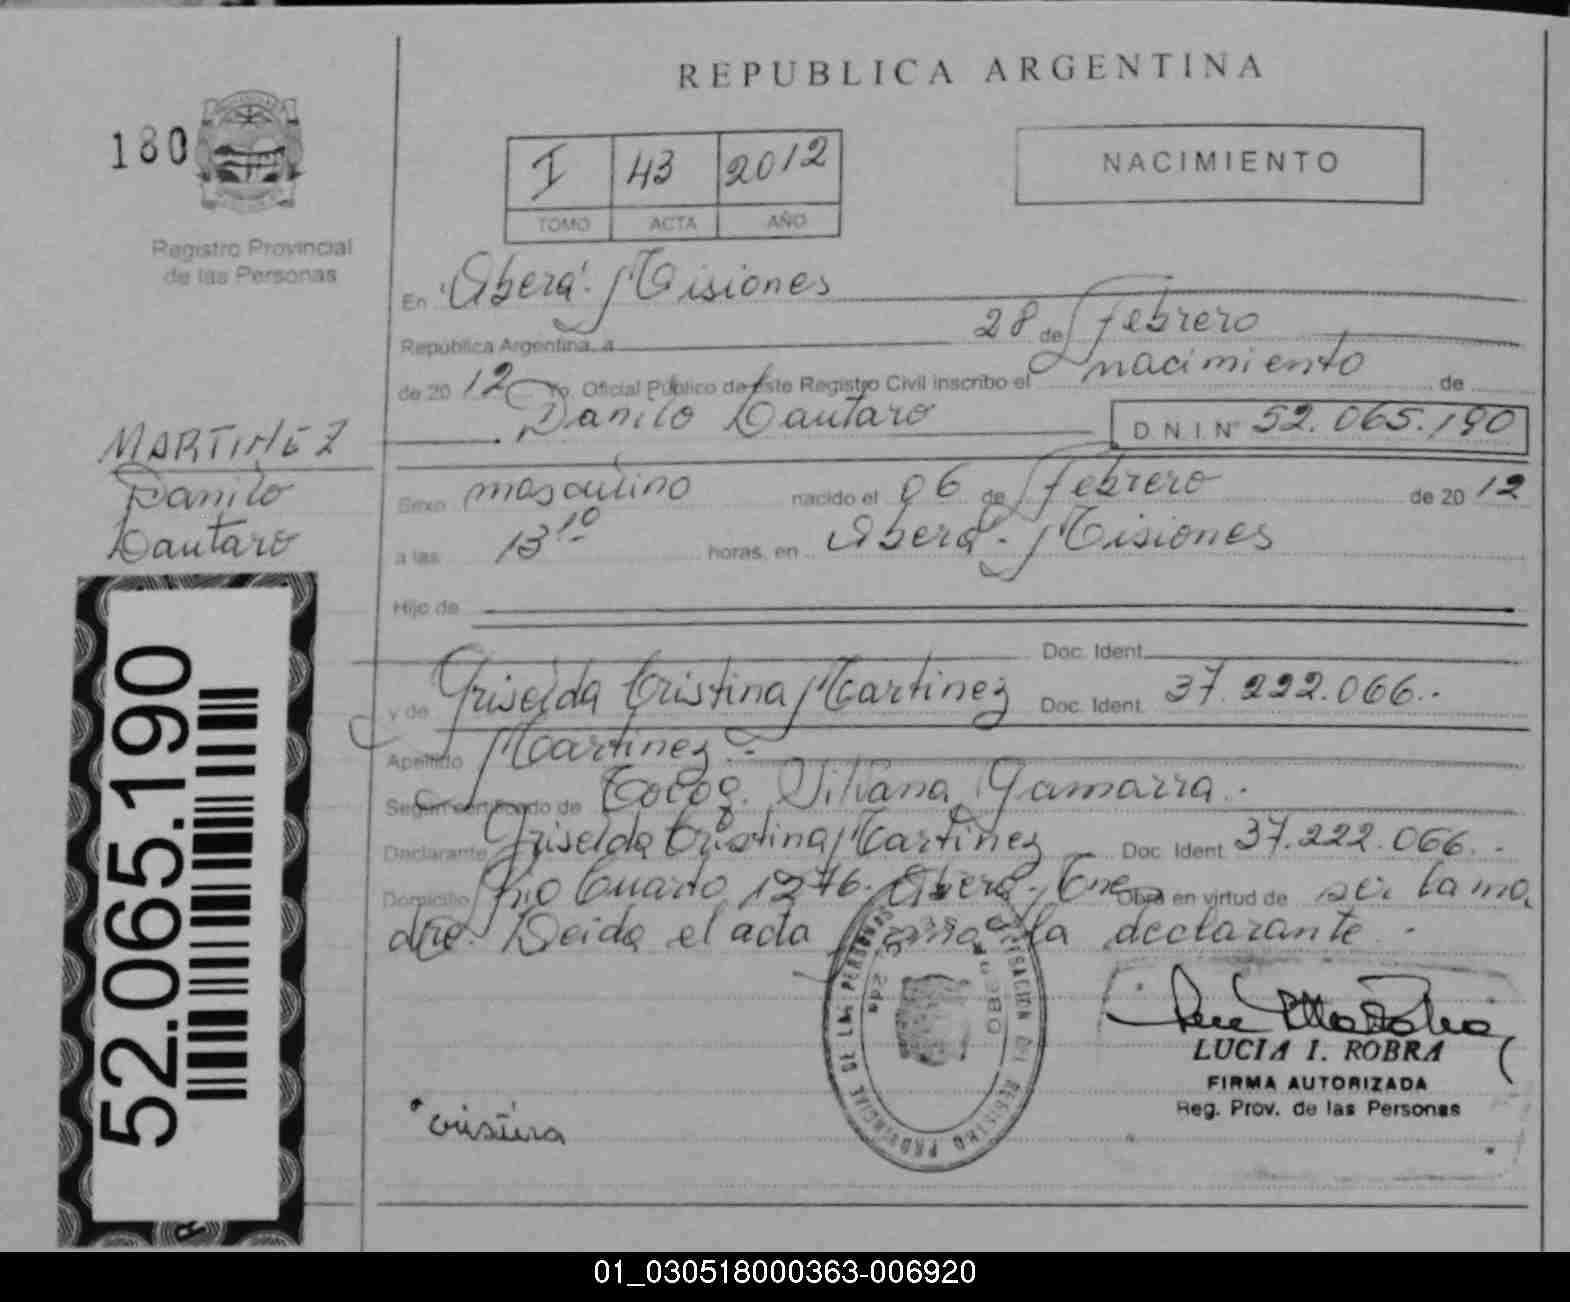 REPUBLICA ARGENTINA
180
I 43 2012
TOMO ACTA AÑO
NACIMIENTO
Registro Provincial
de las Personas
En Oberá - Misiones
República Argentina, a 28 de Febrero
de 2012 Yo, Oficial Público de este Registro Civil inscribo el nacimiento de
Danilo Lautaro D.N.I. Nº 52.065.190
MARTINEZ
Danilo
Lautaro
Sexo masculino nacido el 06 de Febrero de 2012
a las 13 10 horas, en Oberá - Misiones
Hijo de
Doc. Ident.
y de Griselda Cristina Martinez Doc. Ident. 37.222.066.-
Apellido Martinez.-
Según certificado de Tocog. Viviana Gamarra.-
Declarante Griselda Cristina Martinez Doc. Ident. 37.222.066.-
Domicilio Rio Cuarto 1276. Oberá, Mnes Obra en virtud de ser la ma
dre. Leida el acta firma la declarante.-
52.065.190
DELEGACION DEL REGISTRO PROVINCIAL DE LAS PERSONAS
LUCIA I. ROBRA
FIRMA AUTORIZADA
Reg. Prov. de las Personas
cristina
01_030518000363-006920